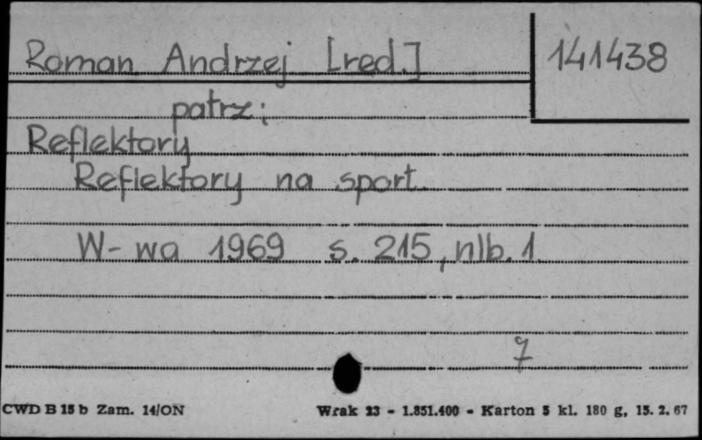 Roman Andrzej [red.] 141438
patrz:
Reflektory
Reflektory na sport
W-wa 1969 s. 215, nlb. 1
7
CWD B 15 b Zam. 14/ON Wrak 23 - 1.851.400 - Karton 5 kl. 180 g, 15. 2. 67